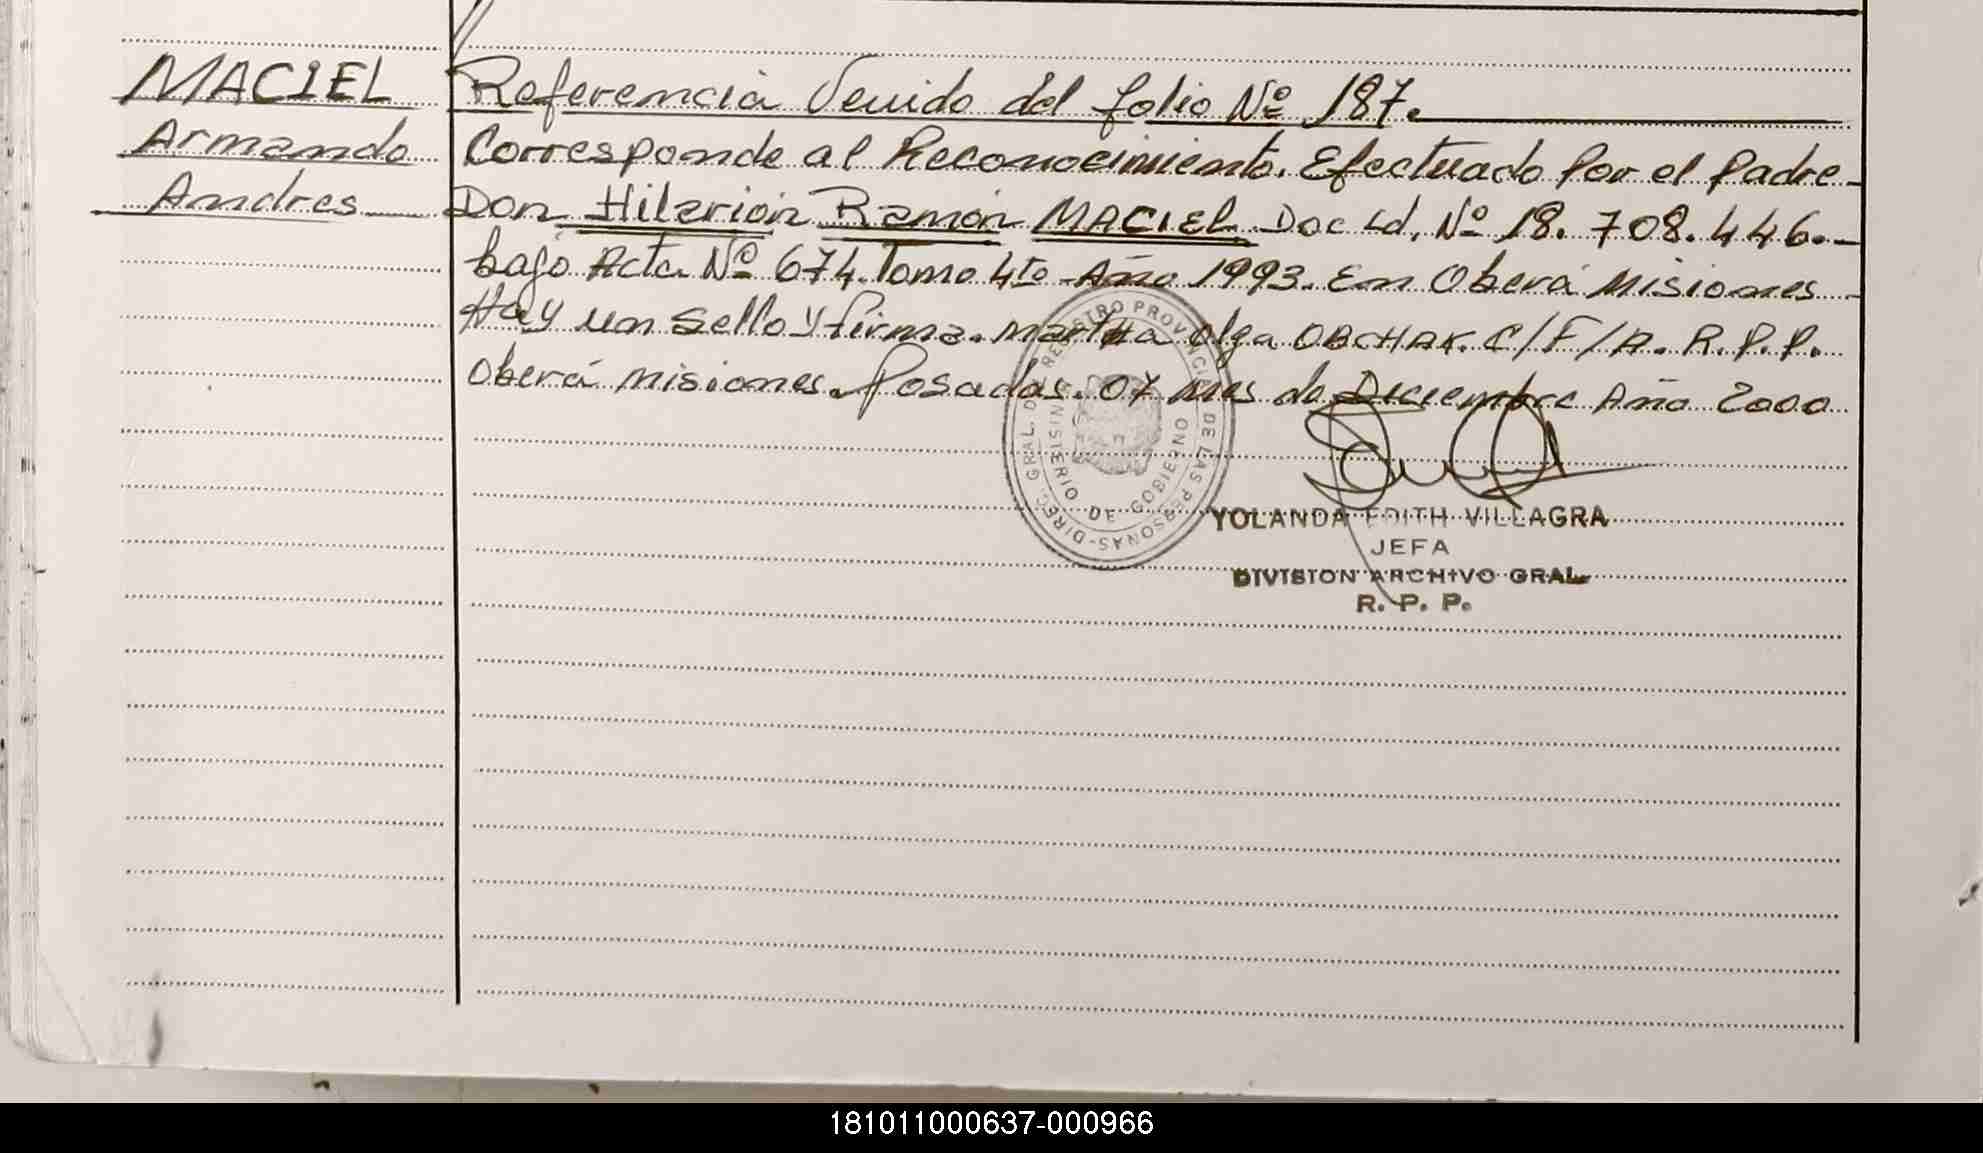 MACIEL
Armando
Andres
Referencia Venido del folio Nº 187.
Corresponde al Reconocimiento. Efectuado Por el Padre-
Don Hilarión Ramón MACIEL. Doc Id. Nº 18.708.446.-
bajo Acta Nº 674. Tomo 4to Año 1993. En Oberá Misiones-
Hay un Sello y firma. Martha Olga OBCHAK. C/F/A. R.P.P.
Oberá Misiones. Posadas. 07 mes de Diciembre Año 2000
DIREC. GRAL. DEL REGISTRO PROVINCIAL DE LAS PERSONAS-
MINISTERIO DE GOBIERNO
YOLANDA EDITH VILLAGRA
JEFA
DIVISION ARCHIVO GRAL
R. P. P.
181011000637-000966